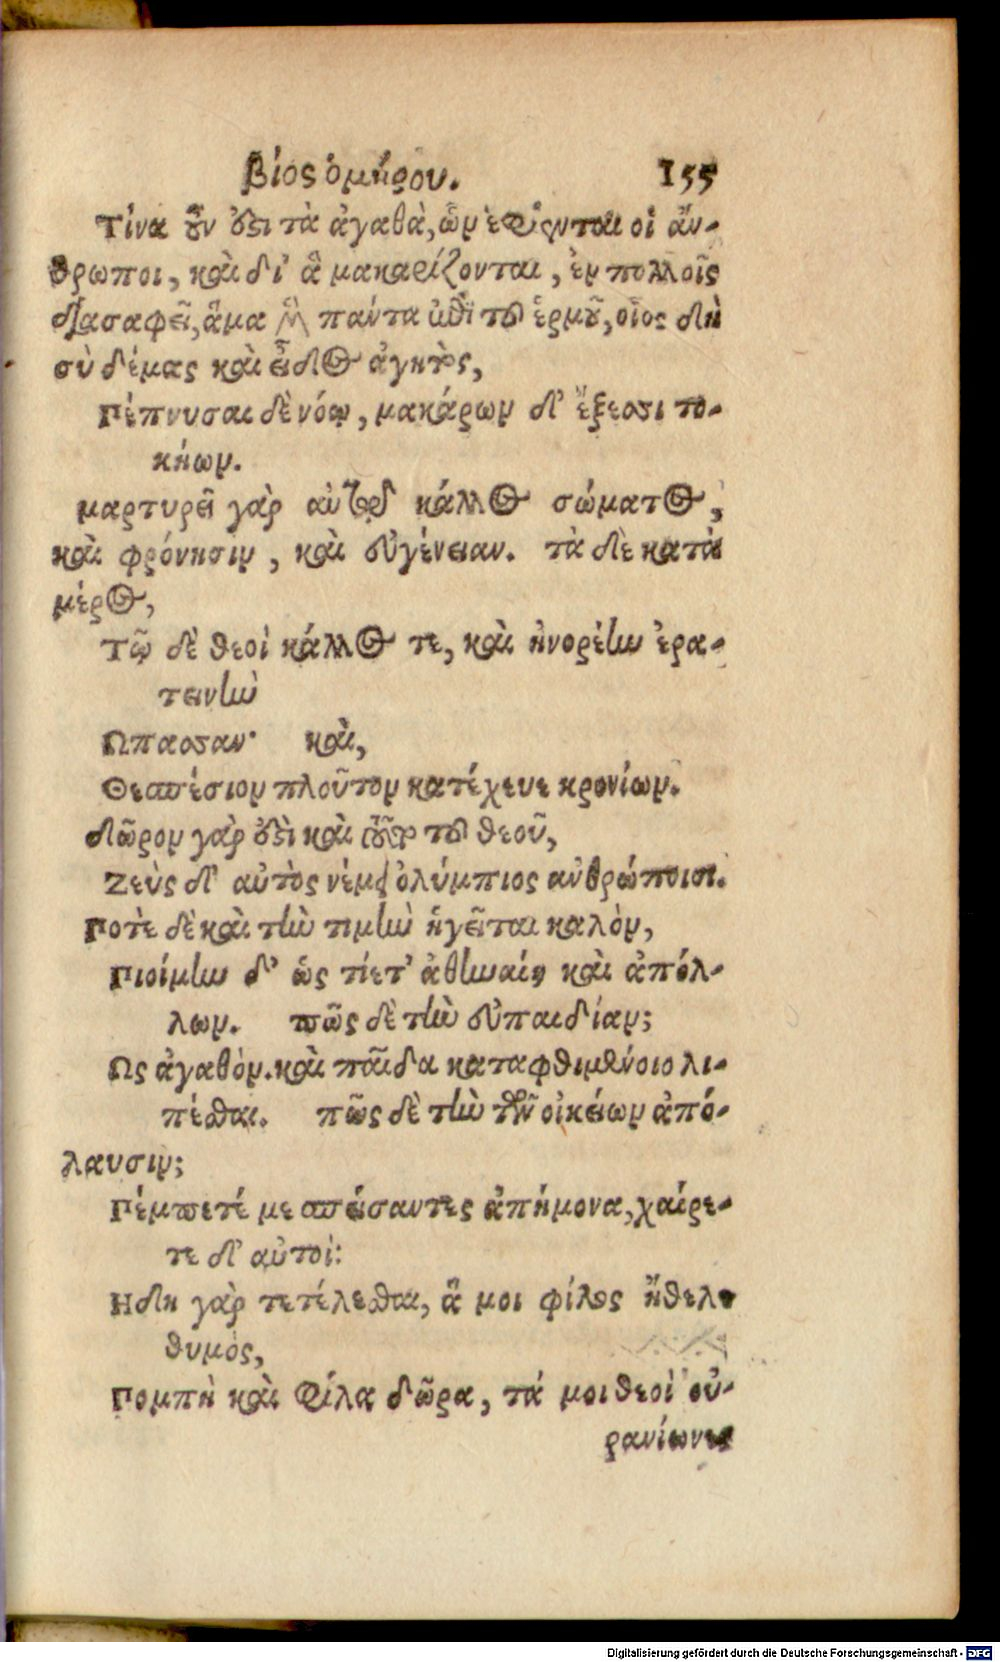 βίος ὁμήρου. 155
Τίνα οὖν ἐστι τὰ ἀγαθὰ, ὧν ἐφίενται οἱ ἄν-
θρωποι, καὶ δι' ἃ μακαρίζονται, ἐν πολλοῖς
διασαφεῖ, ἅμα πάντα ἐπὶ τοῦ ἑρμοῦ, οἷος δὴ
σὺ δέμας καὶ εἶδος ἀγητὸς,
Πέπνυσαι δὲ νόῳ, μακάρων δ' ἔξεσσι το-
κήων.
μαρτυρεῖ γὰρ αὐτῷ κάλλος σώματος,
καὶ φρόνησιν, καὶ εὐγένειαν. τὰ δὲ κατὰ
μέρος,
Τῷ δὲ θεοὶ κάλλος τε, καὶ ἠνορέην ἐρα-
τεινὴν
Ωπασσαν· καὶ,
Θεσπέσιον πλοῦτον κατέχευε κρονίων.
δῶρον γὰρ ἐστὶ καὶ τοῦ θεοῦ,
Ζεὺς δ' αὐτὸς νέμει ὀλύμπιος ἀνθρώποισι.
Ποτὲ δὲ καὶ τὴν τιμὴν ἡγεῖται καλὸν,
Πιοίμην δ' ὡς τίετ' ἀθηναίη καὶ ἀπόλ-
λων. πῶς δὲ τὴν εὐπαιδίαν;
Ως ἀγαθὸν. καὶ παῖδα καταφθιμένοιο λι-
πέσθαι. πῶς δὲ τὴν τῶν οἰκείων ἀπό-
λαυσιν;
Πέμπετέ με σπείσαντες ἀπήμονα, χαίρε-
τε δ' αὐτοί:
Ηδη γὰρ τετέλεσθαι, ἅ μοι φίλος ἤθελε
θυμὸς,
Πομπὴ καὶ φίλα δῶρα, τά μοι θεοὶ οὐ-
ρανίωνες
Digitalisierung gefördert durch die Deutsche Forschungsgemeinschaft - DFG